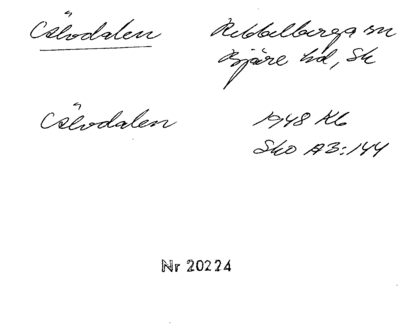 Östodalen Rebbelberga sn
Bjäre hd, Sk
Östodalen 1948 Kb
Sko AB:144
Nr 20224